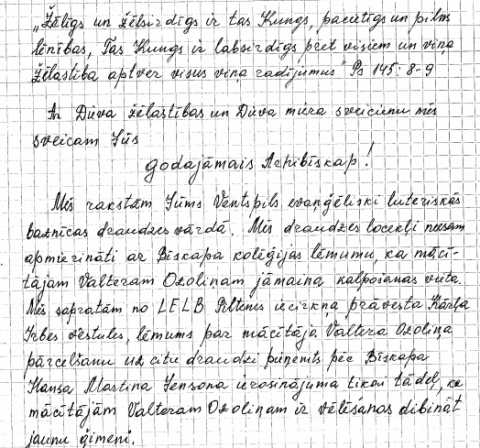 „Žēlīgs un žēlsirdīgs ir tas Kungs, pacietīgs un pilns
lēnības, Tas Kungs ir labsirdīgs pret visiem un viņa
žēlastība aptver visus viņa radījumus" Ps 145:8-9
Ar Dieva žēlastības un Dieva miera sveicienu mēs
sveicam Jūs
godājamais Arhibīskap!
Mēs rakstam Jums Ventspils evaņģēliski luteriskās
baznīcas draudzes vārdā. Mēs draudzes locekļi neesam
apmierināti ar Bīskapa kolēģijas lēmumu, ka mācī-
tājam Valteram Ozoliņam jāmaina kalpošanas vieta.
Mēs sapratām no LELB Piltenes iecirkņa prāvesta Kārļa
Irbes vēstules, lēmums par mācītāja Valtera Ozoliņa
pārcelšanu uz citu draudzi pieņemts pēc Bīskapa
Hansa Martina Jensona ierosinājuma tikai tādēļ, ka
mācītājam Valteram Ozoliņam ir vēlēšanas dibināt
jaunu ģimeni.